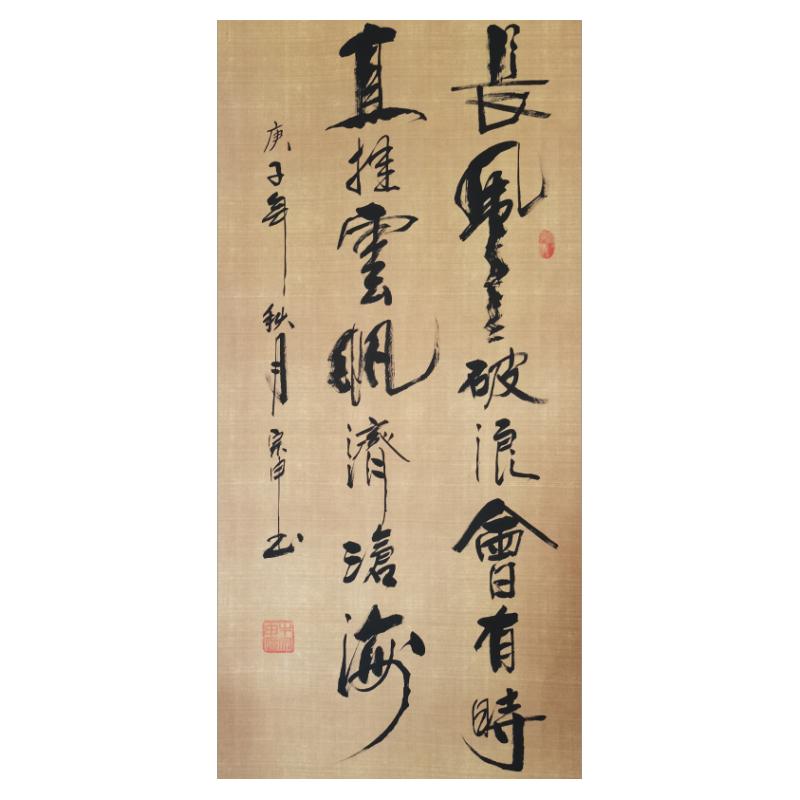 長風破浪會有時
直挂雲帆濟滄海
庚子年秋月宗申书